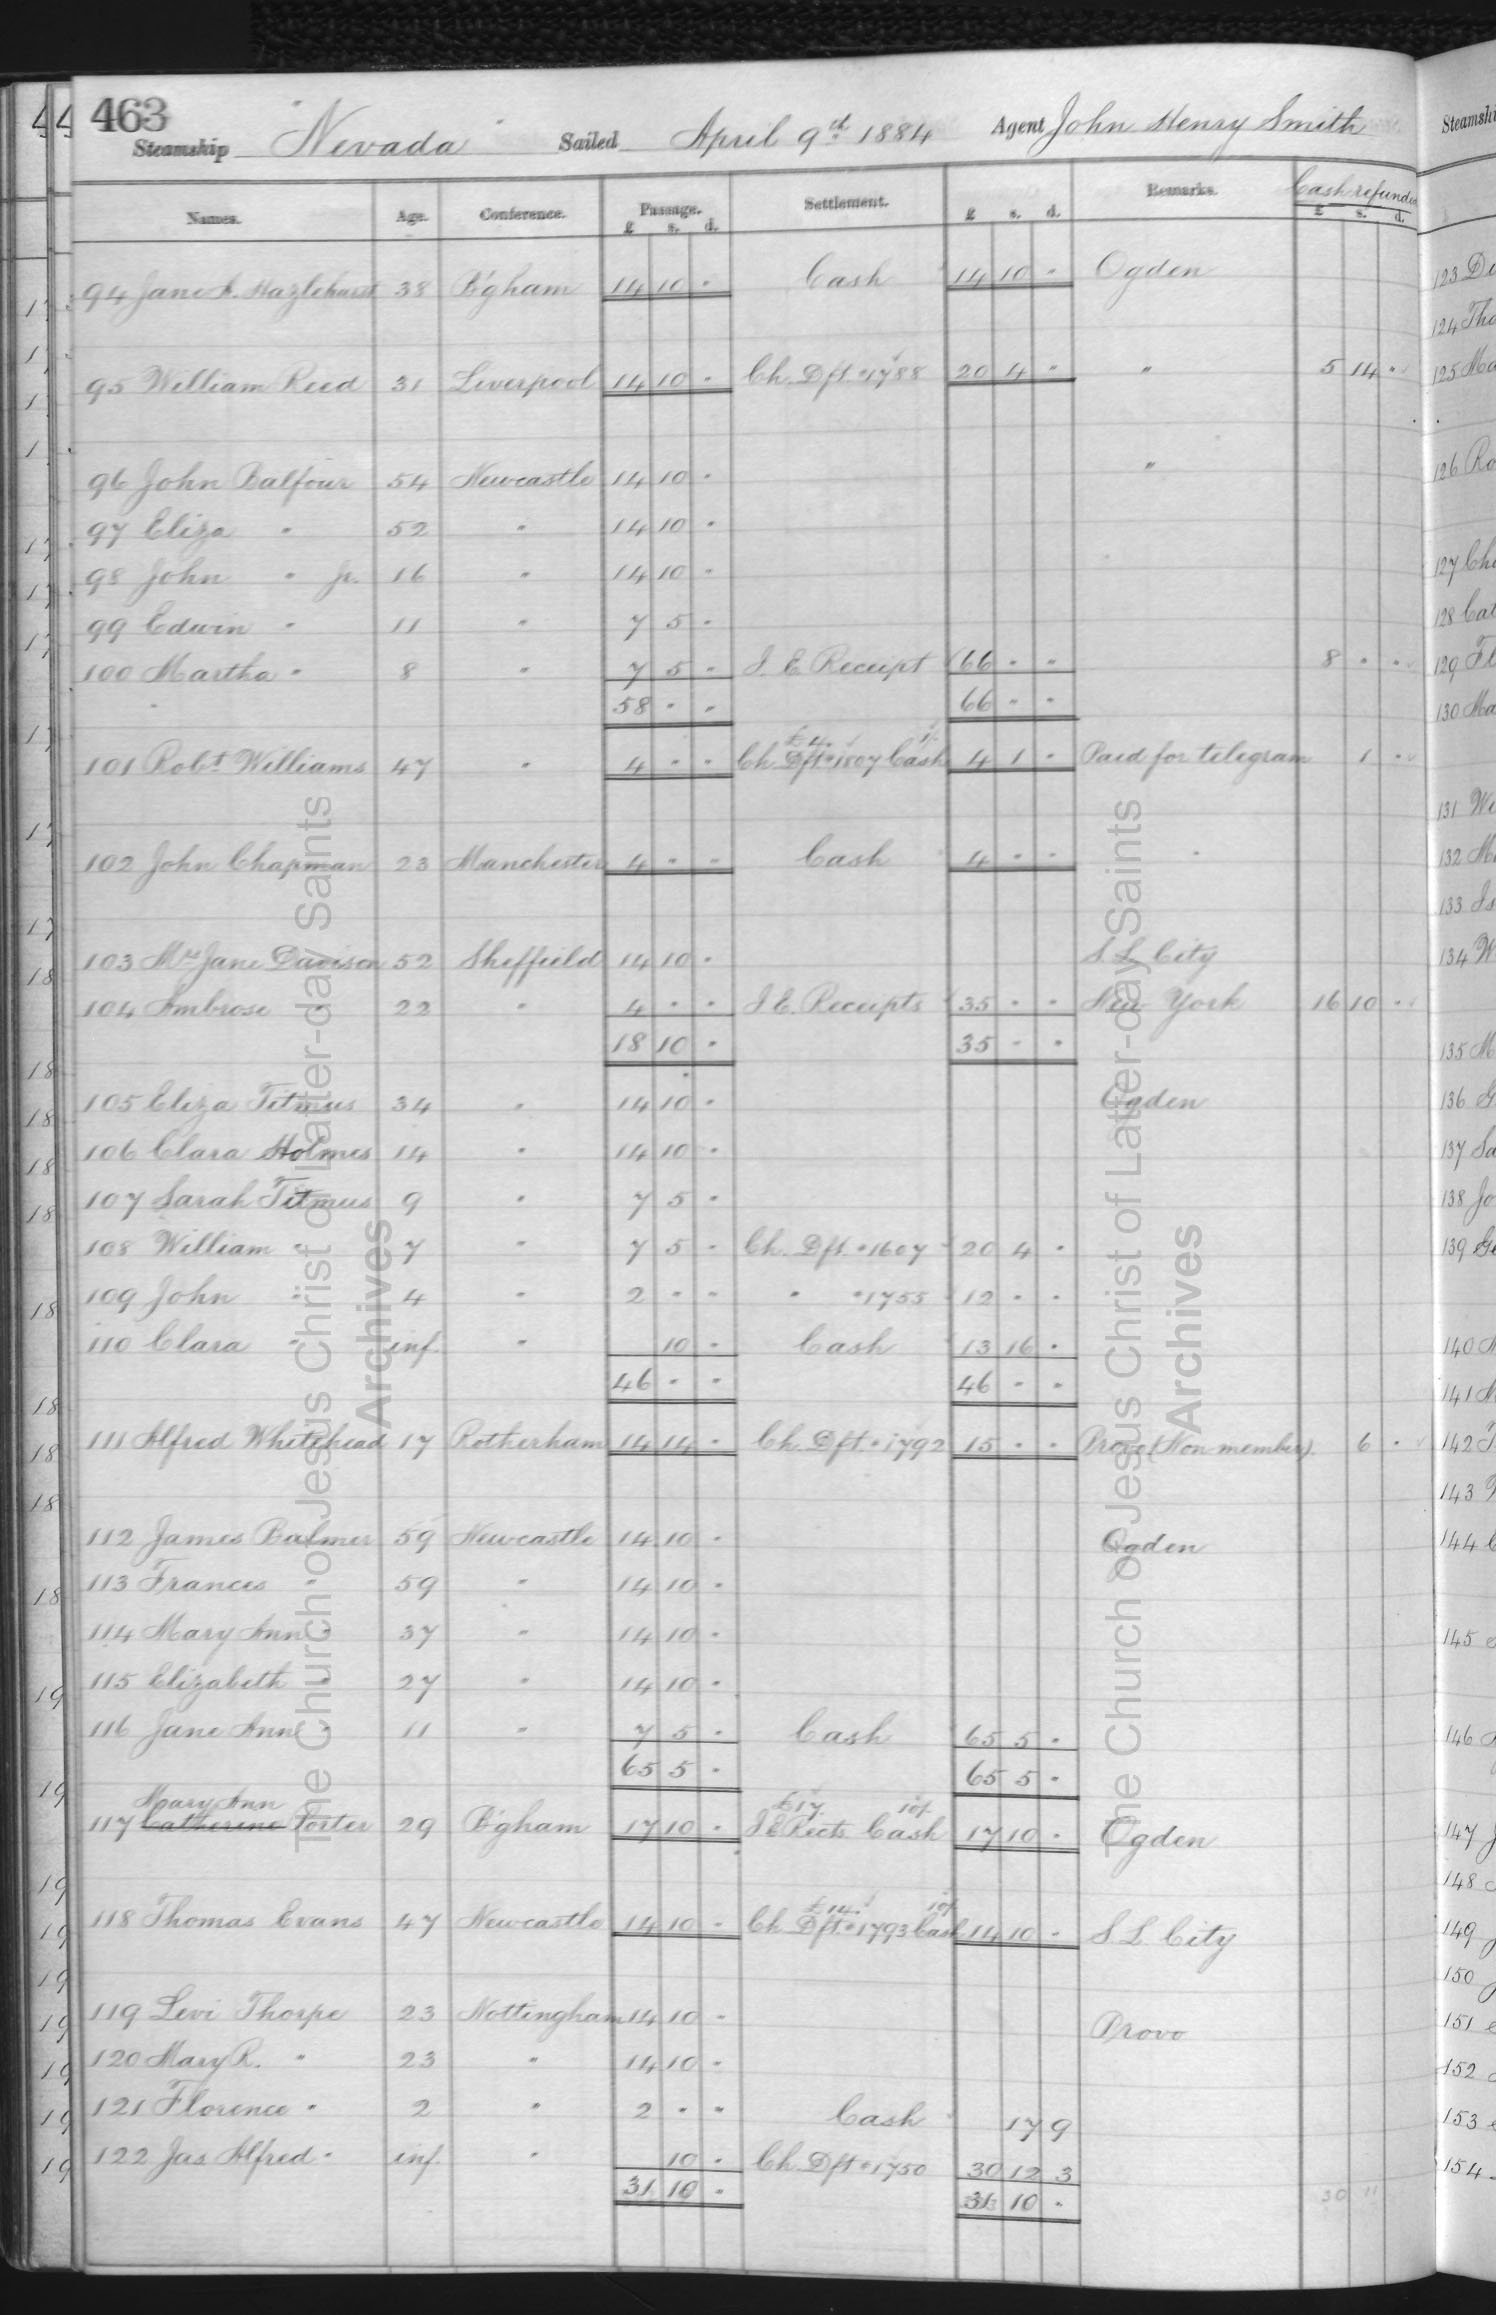 463
Steamship Nevada Sailed April 9th 1884 Agent John Henry Smith
Names. Age. Conference. Passage. Settlement. Remarks. Cash refunded
£ s. d. £ s. d. £ s. d.
94 Jane A. Hazlehurst 38 B'gham 14 10 " Cash 14 10 " Ogden
95 William Reed 31 Liverpool 14 10 " Ch. Dft "1788 20 4 " " 5 14 "
96 John Balfour 54 Newcastle 14 10 " "
97 Eliza " 52 " 14 10 "
98 John " Jr. 16 " 14 10 "
99 Edwin " 11 " 7 5 "
100 Martha " 8 " 7 5 " I. E. Receipt 66 " " 8 " "
58 " " 66 " "
£4. 1/-
101 Robt Williams 47 " 4 " " Ch. Dft "1807 Cash 4 1 " Paid for telegram 1 "
102 John Chapman 23 Manchester 4 " " Cash 4 " " "
103 Mrs Jane Davison 52 Sheffield 14 10 " S. L. City
104 Ambrose " 22 " 4 " " I. E. Receipts 35 " " New York 16 10 "
18 10 " 35 " "
105 Eliza Titmus 34 " 14 10 " Ogden
106 Clara Holmes 14 " 14 10 "
107 Sarah Titmus 9 " 7 5 "
108 William " 7 " 7 5 " Ch. Dft. "1607 20 4 "
109 John " 4 " 2 " " " "1755 12 " "
110 Clara " inf. " 10 " Cash 13 16 "
46 " " 46 " "
111 Alfred Whitehead 17 Rotherham 14 14 " Ch. Dft "1792 15 " " Provo (Non-member). 6 "
112 James Balmer 59 Newcastle 14 10 " Ogden
113 Frances " 59 " 14 10 "
114 Mary Ann " 37 " 14 10 "
115 Elizabeth " 27 " 14 10 "
116 Jane Ann " 11 " 7 5 " Cash 65 5 "
65 5 " 65 5 "
Mary Ann £17. 10/-
117 Catherine Porter 29 B'gham 17 10 " I E Rects Cash 17 10 " Ogden
£14. 10/-
118 Thomas Evans 47 Newcastle 14 10 " Ch. Dft "1793 Cash 14 10 " S. L. City
119 Levi Thorpe 23 Nottingham 14 10 " Provo
120 Mary R. " 23 " 14 10 "
121 Florence " 2 " 2 " " Cash 17 9
122 Jas Alfred " inf. " 10 " Ch. Dft "1750 30 12 3
31 10 " 31 10 "
30 11
The Church of Jesus Christ of Latter-day Saints
Archives
The Church of Jesus Christ of Latter-day Saints
Archives